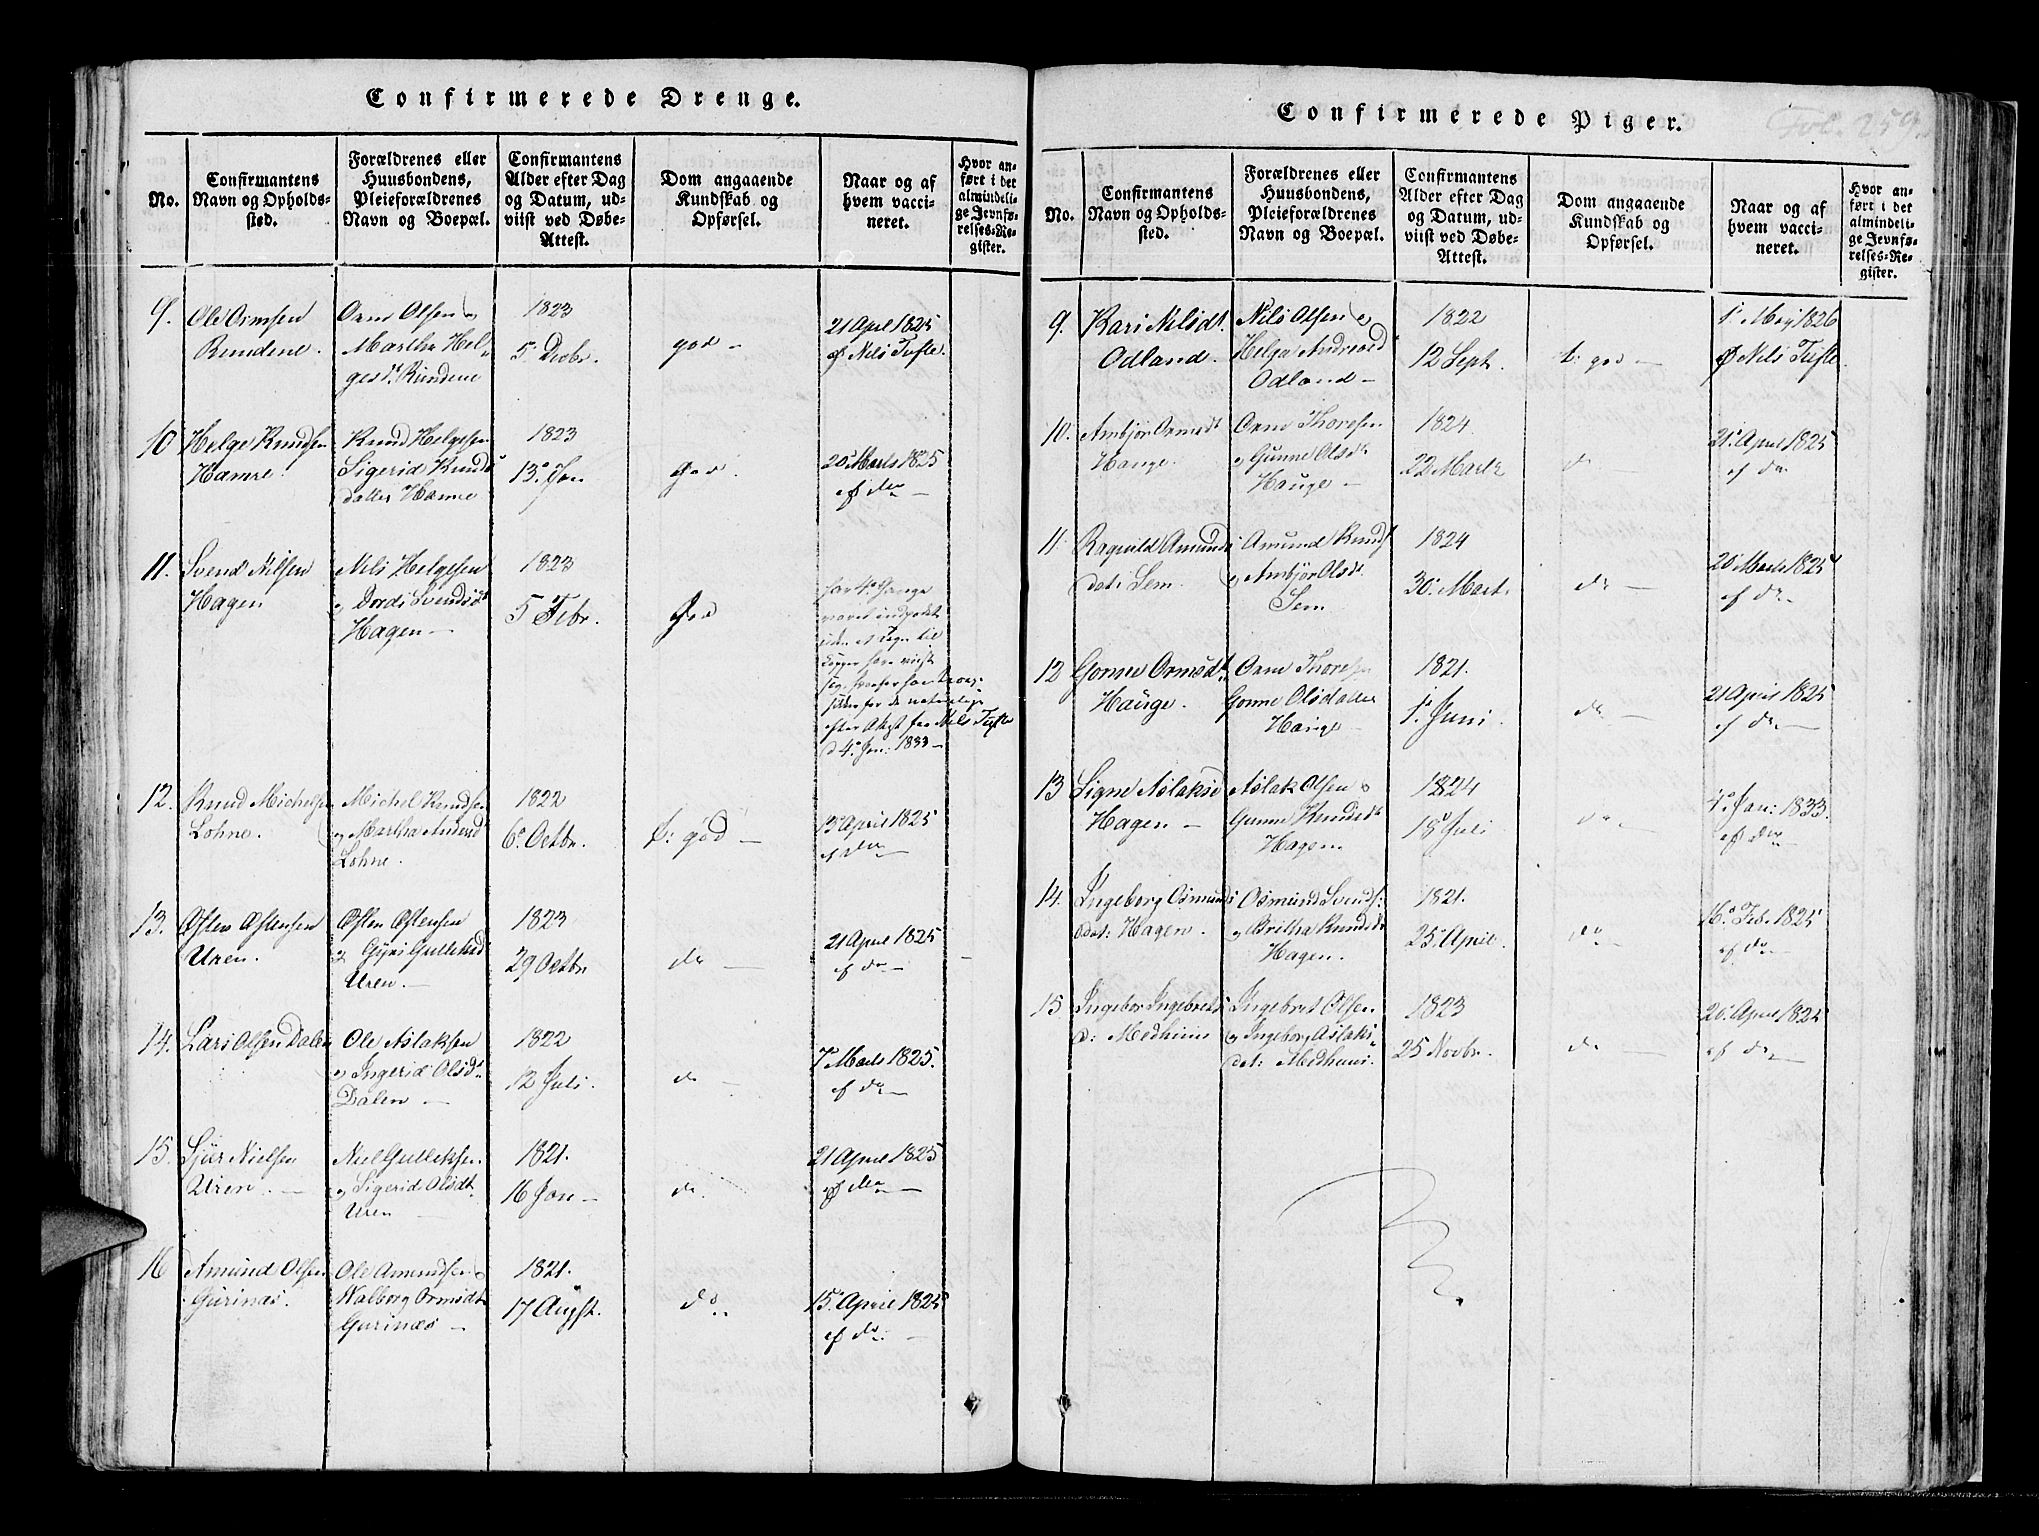 Confirmerede Drenge.
No.
Confirmantens
Navn og Opholds-
sted.
Forældrenes eller
Huusbondens,
Pleieforældrenes
Navn og Boepæl.
Confirmantens
Alder efter Dag
og Datum, ud-
viist ved Døbe-
Attest.
Dom angaaende
Kundskab og
Opførsel.
Naar og af
hvem vacci-
neret.
Hvor an-
ført i det
almindeli-
ge Jevnfø-
relses-Re-
gister.
9.
Ole Ormsen
Rundene.
Orm Olsen
Martha Hel-
gesd. Rundene
1823
5 Decbr.
god -
21 April 1825
af Nils Tufte
10
Helge Knudsen
Hamre.
Knud Helgesen
Sigerid Knuds
datter Hamre
1823
13. Jan
God.
20 Marts 1825
af do -
11.
Svend Nilsen
Hagen
Nils Helgesen
og Dordi Svendsdt
Hagen -
1823
5 Febr.
God
har 4 Gange
været indpodet
uden at Tegn til
Kopper have viist
sig
for de naturlige
efter Attest fra Nils Tufte
d 4 Jan: 1833 -
12.
Knud Michelsen
Lohne.
Michel Knudsen
og Martha Anders d
Lohne.
1822
6 Octbr.
t: god -
15 April 1825
af do -
13.
Østen Østensen
Uren.
Østen Østensen
og Gyri Gulleksd
Uren. -
1823
29 Octbr
do -
21 April 1825
af do -
14.
Lars Olsen Dalen
Ole Aslaksen
og Ingerid Olsdt
Dalen -
1822
12 Juli.
do -
7 Marts 1825.
af do -
15.
Sjur Nielsen
Uren. -
Niel Gulleksen
og Sigerid Olsdt.
Uren -
1821.
16 Jan -
do.
21 April 1825
af do -
16
Amund Olsen
Gurinas.
Ole Amundsen og
Walborg Ormsdt
Gurinas -
1821.
17 Augst.
do.
15. April 1825
af do. -
Confirmerede Piger.
Fol. 259.
No.
Confirmantens
Navn og Opholds-
sted.
Forældrenes eller
Huusbondens,
Pleieforældrenes
Navn og Boepæl.
Confirmantens
Alder efter Dag
og Datum, ud-
viist ved Døbe-
Attest.
Dom angaaende
Kundskab og
Opførsel.
Naar og af
hvem vacci-
neret.
Hvor an-
ført i det
almindeli-
ge Jevnfø-
relses-Re-
gister.
9.
Kari Nilsdt.
Odland.
Nils Olsen og
Helga Andreasd
Odland -
1822
12 Sept.
t: god -
1. May 1826
af Nils Tufte
10.
Ambjør Ormsdt
Hauge.
Orm Thoresen
og Gunne Olsdt
Hauge -
1824
22 Marts
do -
21. April 1825
af do.
11.
Ragnild Amunds
dat: Sem.
Amund Knuds
og Ambjør Olsdt.
Sem
1824
30. Mart.
do -
20 Marts 1825
af do -
12
Gonne Ormsdt.
Hauge.
Orm Thoresen
Gonne Olsdatter
Hauge -
1821.
1. Juni
do -
21 April 1825
af do -
13
Signe Aslaksd
Hagen -
Aslak Olsen og
Gunne Knudsdt
Hagen.
1824
18 Juli
do -
4. Jan: 1833.
af do -
14.
Ingeborg Osmunds
dat: Hagen.
Osmund Svends:
og Britha Knudsdt
Hagen.
1821.
25. April.
do -
16. Feb. 1825
af do -
15
Ingebor Ingebrets
d: Medhuus
Ingebret Olsen
og Ingeborg Aslaks-
dat: Medhuus.
1823
25 Novbr.
do -
20. April 1825
af do -